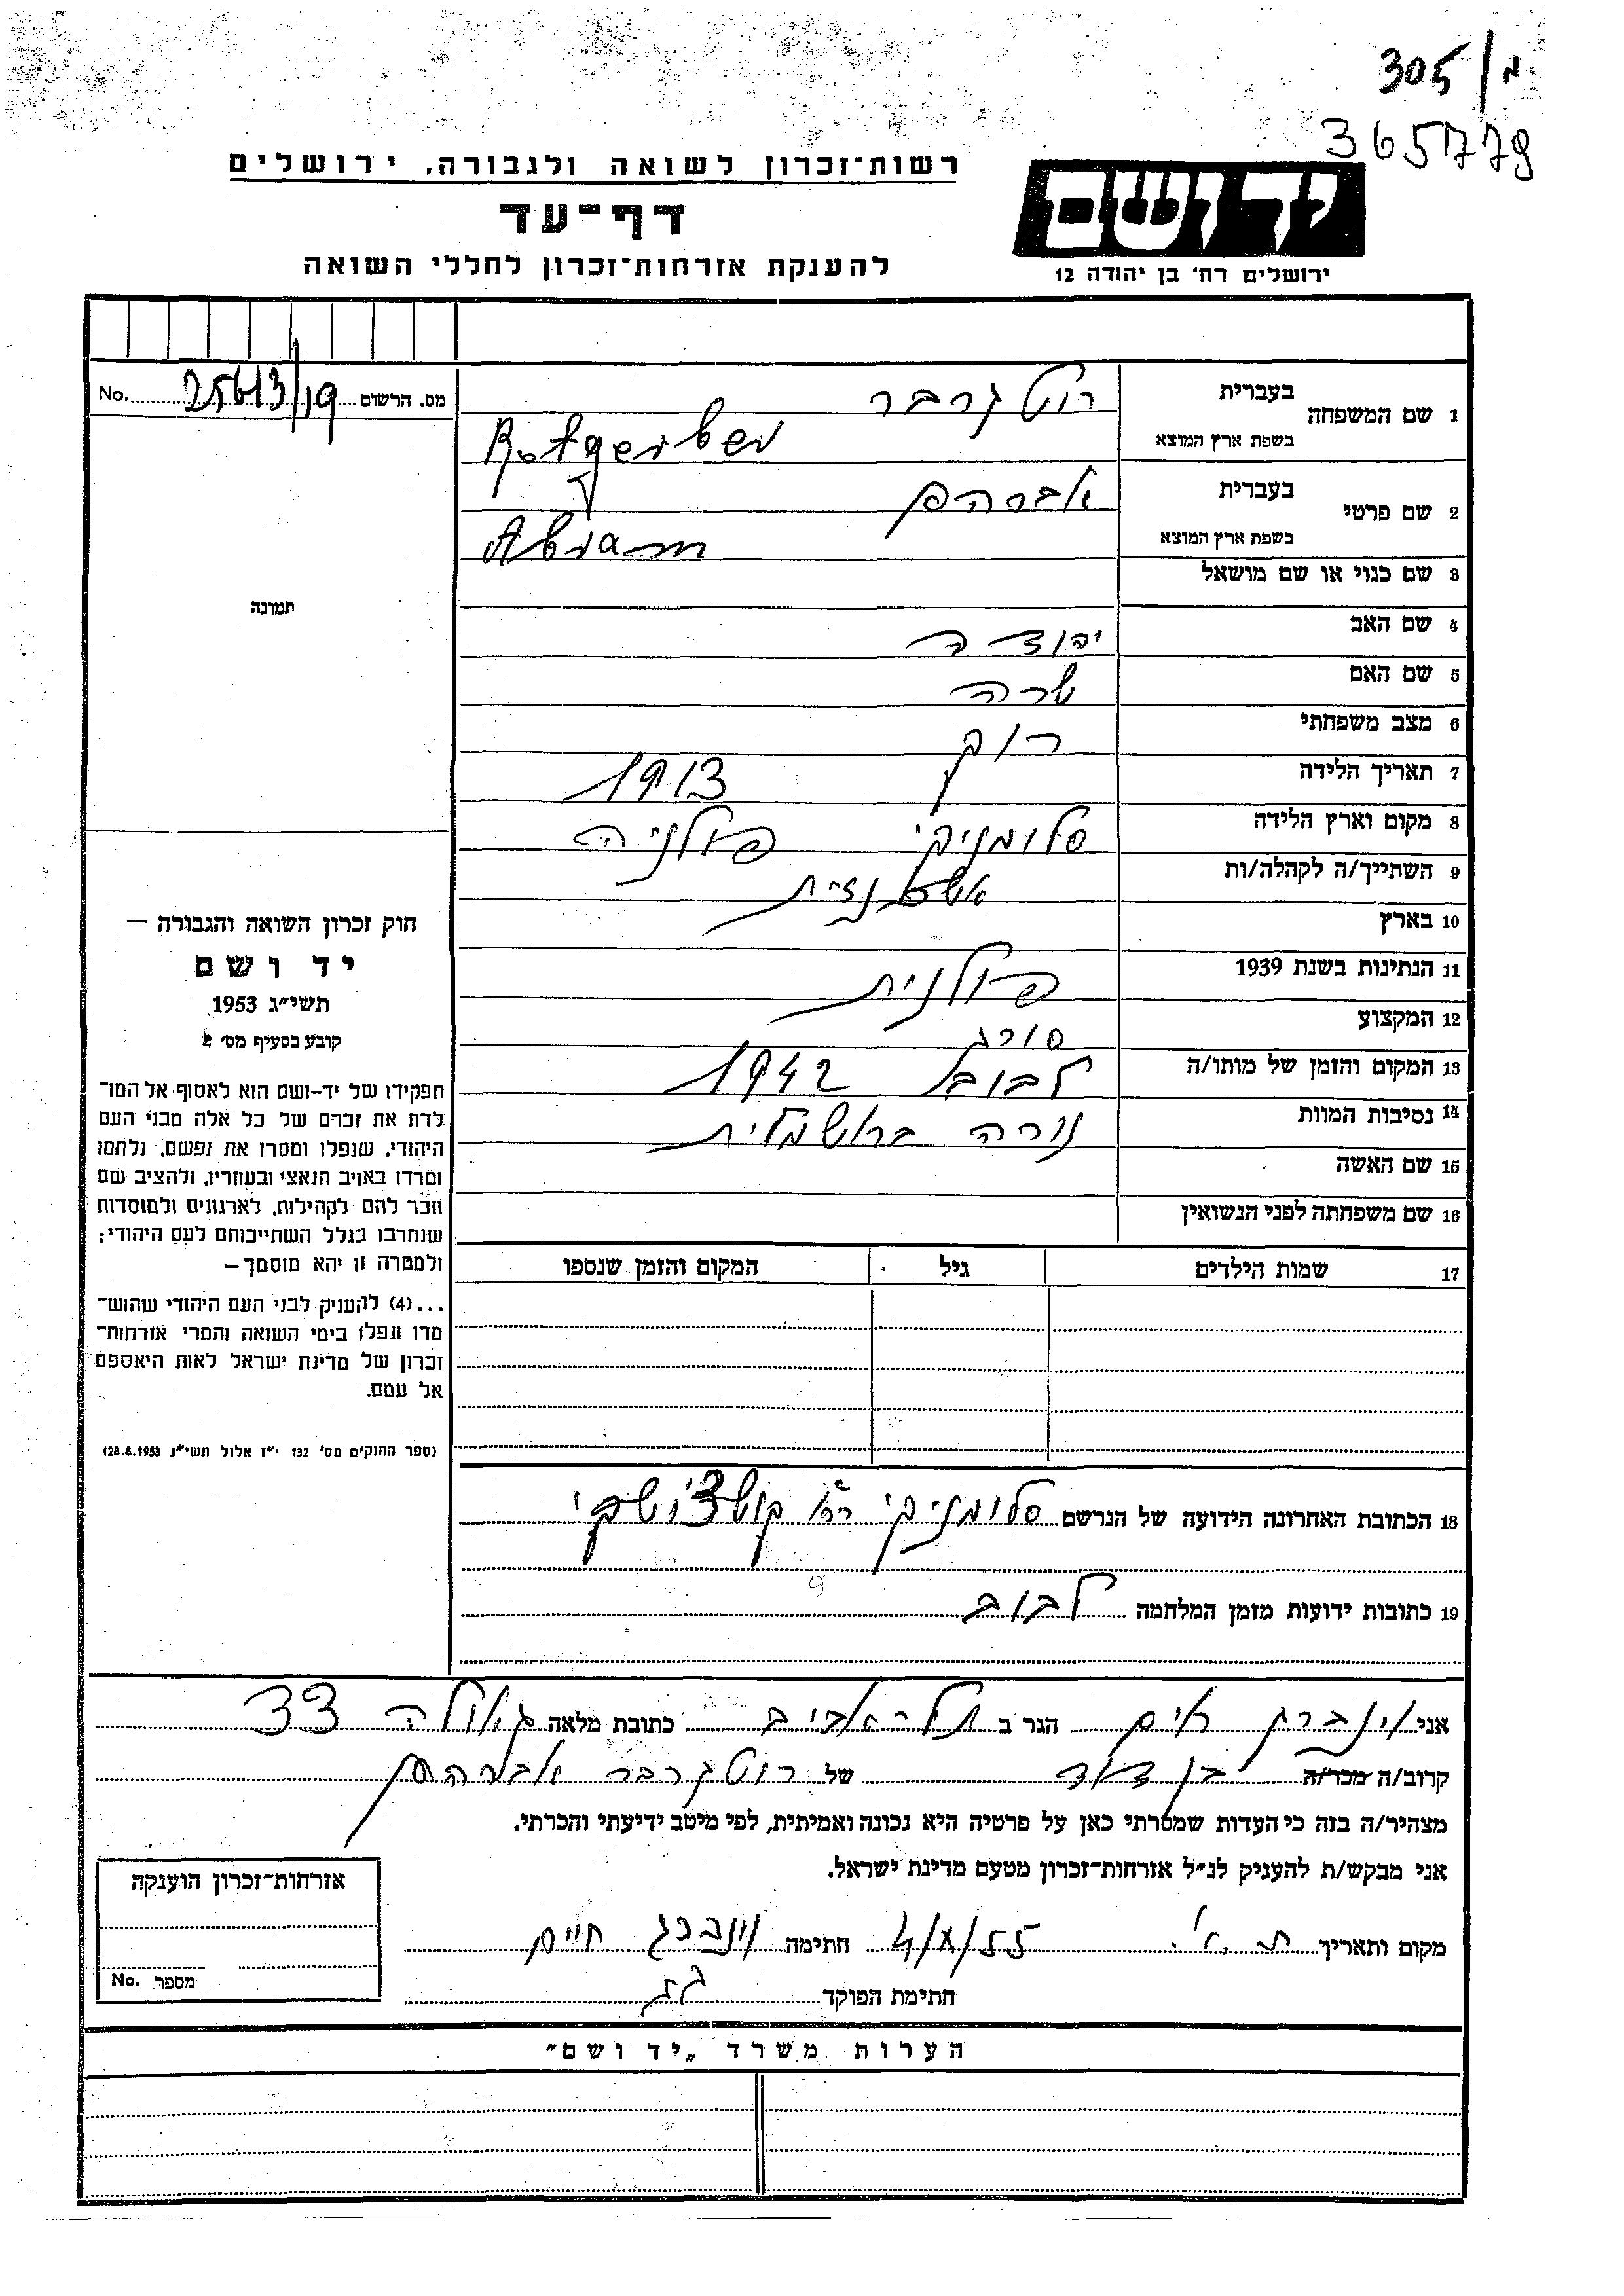 305/מ
365779
רשות־זכרון לשואה ולגבורה, ירושלים
דף־עד
להענקת אזרחות־זכרון לחללי השואה
יד ושם
ירושלים רח׳ בן יהודה 12
מס. הרשום 25613/19 No.
1 שם המשפחה
בעברית רוטגרבר
בשפת ארץ המוצא Rotgerber
2 שם פרטי
בעברית אברהם
בשפת ארץ המוצא Abram
3 שם כנוי או שם מושאל
4 שם האב יהודה
5 שם האם שרה
6 מצב משפחתי רוק
7 תאריך הלידה 1913
8 מקום וארץ הלידה סלומניקי פולניה
9 השתייך/ה לקהלה/ות אשכנזית
10 בארץ
11 הנתינות בשנת 1939 פולנית
12 המקצוע סורג
13 המקום והזמן של מותו/ה לבוב 1942
14 נסיבות המוות נורה
15 שם האשה
16 שם משפחתה לפני הנשואין
17 שמות הילדים גיל המקום והזמן שנספו
תמונה
חוק זכרון השואה והגבורה —
יד ושם
תשי״ג 1953
קובע בסעיף מס׳ 2
תפקידו של יד-ושם הוא לאסוף אל המו־
לדת את זכרם של כל אלה מבני העם
היהודי, שנפלו ומסרו את נפשם, נלחמו
ומרדו באויב הנאצי ובעוזריו, ולהציב שם
וזכר להם לקהילות, לארגונים ולמוסדות
שנחרבו בגלל השתייכותם לעם היהודי;
ולמטרה זו יהא מוסמך —
...(4) להעניק לבני העם היהודי שהוש־
מדו ונפלו בימי השואה והמרי אזרחות־
זכרון של מדינת ישראל לאות היאספם
אל עמם.
(ספר החוקים מס׳ 132 י״ז אלול תשי״ג 28.8.1953)
18 הכתובת האחרונה הידועה של הנרשם סלומניקי
19 כתובות ידועות מזמן המלחמה לבוב
אני וינברג חיים הגר ב תל־אביב כתובת מלאה גאולה 33
קרוב/ה מכר/ה בן דוד של רוטגרבר אברהם
מצהיר/ה בזה כי העדות שמסרתי כאן על פרטיה היא נכונה ואמיתית, לפי מיטב ידיעתי והכרתי.
אני מבקש/ת להעניק לנ״ל אזרחות־זכרון מטעם מדינת ישראל.
מקום ותאריך ת.א. 4/X/55 חתימה וינברג חיים
חתימת הפוקד
אזרחות־זכרון הוענקה
מספר No.
הערות משרד „יד ושם"